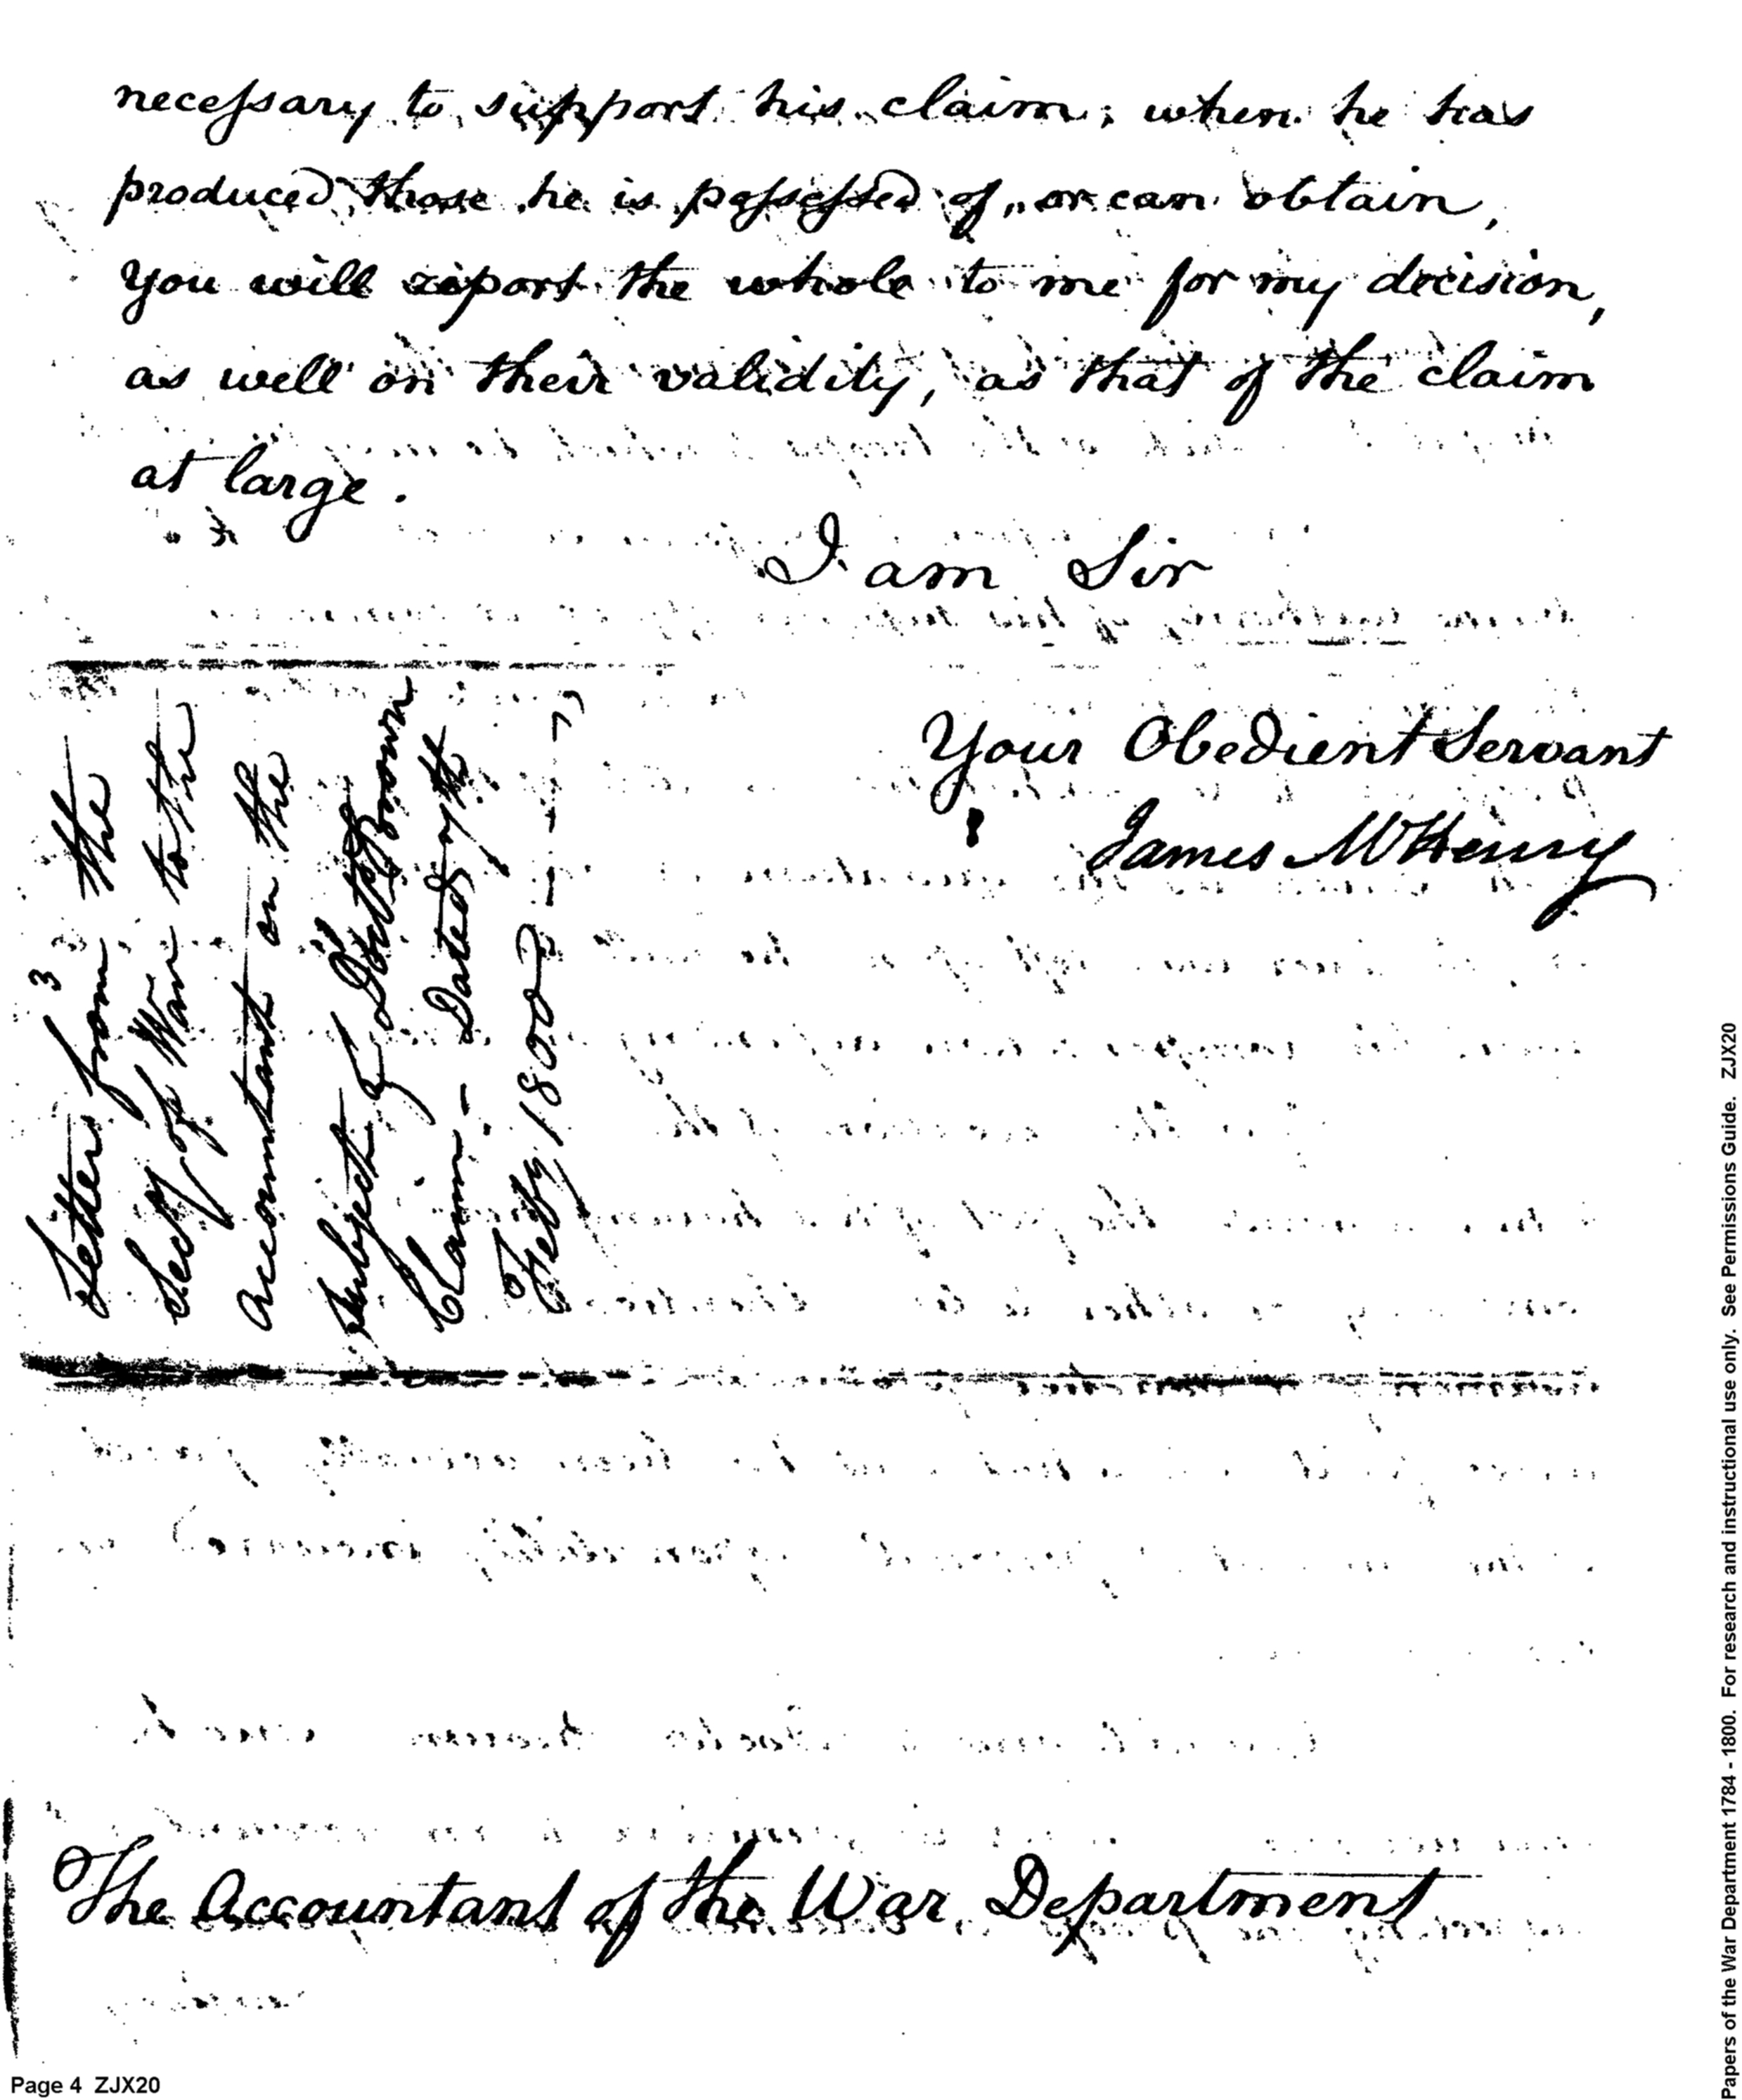 necessary to support his claim; when he has
produced those he is possessed of, or can obtain,
you will report the whole to me for my decision,
as well on their validity, as that of the claim
at large.
I am Sir
Your Obedient Servant
James McHenry
3
Letter from the
Secy of War to the
accountant on the
subject of Doctr Brown
Claim - Dated 7th
Feby 1800
The Accountant of the War Department
Page 4 ZJX20
Papers of the War Department 1784 - 1800. For research and instructional use only. See Permissions Guide. ZJX20